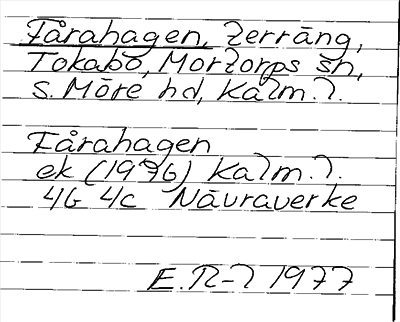 Fårahagen, terräng,
Tokabo, Mortorps sn,
S. Möre hd, Kalm. l.
Fårahagen
ek (1976) Kalm. l.
4G 4c Nävraverke
E. N-l 1977